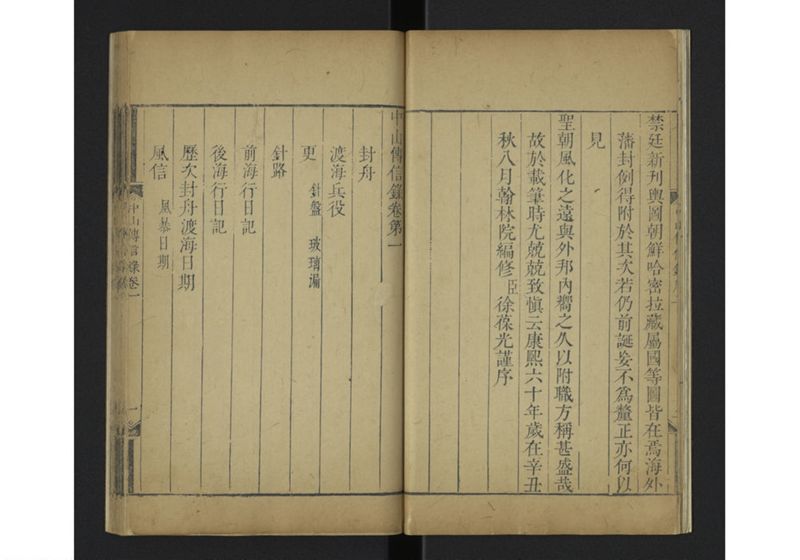 禁廷新刋輿圖朝鮮哈密拉藏屬國等圖皆在焉海外
藩封例得附於其次若仍前誕妄不爲釐正亦何以
見
聖朝風化之遠與外邦內嚮之久以附職方稱甚盛哉
故於載筆時尤兢兢致慎云康熙六十年歲在辛丑
秋八月翰林院編修臣徐葆光謹序
中山傳信錄卷第一
封舟
渡海兵役
更 針盤 玻璃漏
針路
前海行日記
後海行日記
歷次封舟渡海日期
風信 風暴日期
中山傳信錄卷一
一